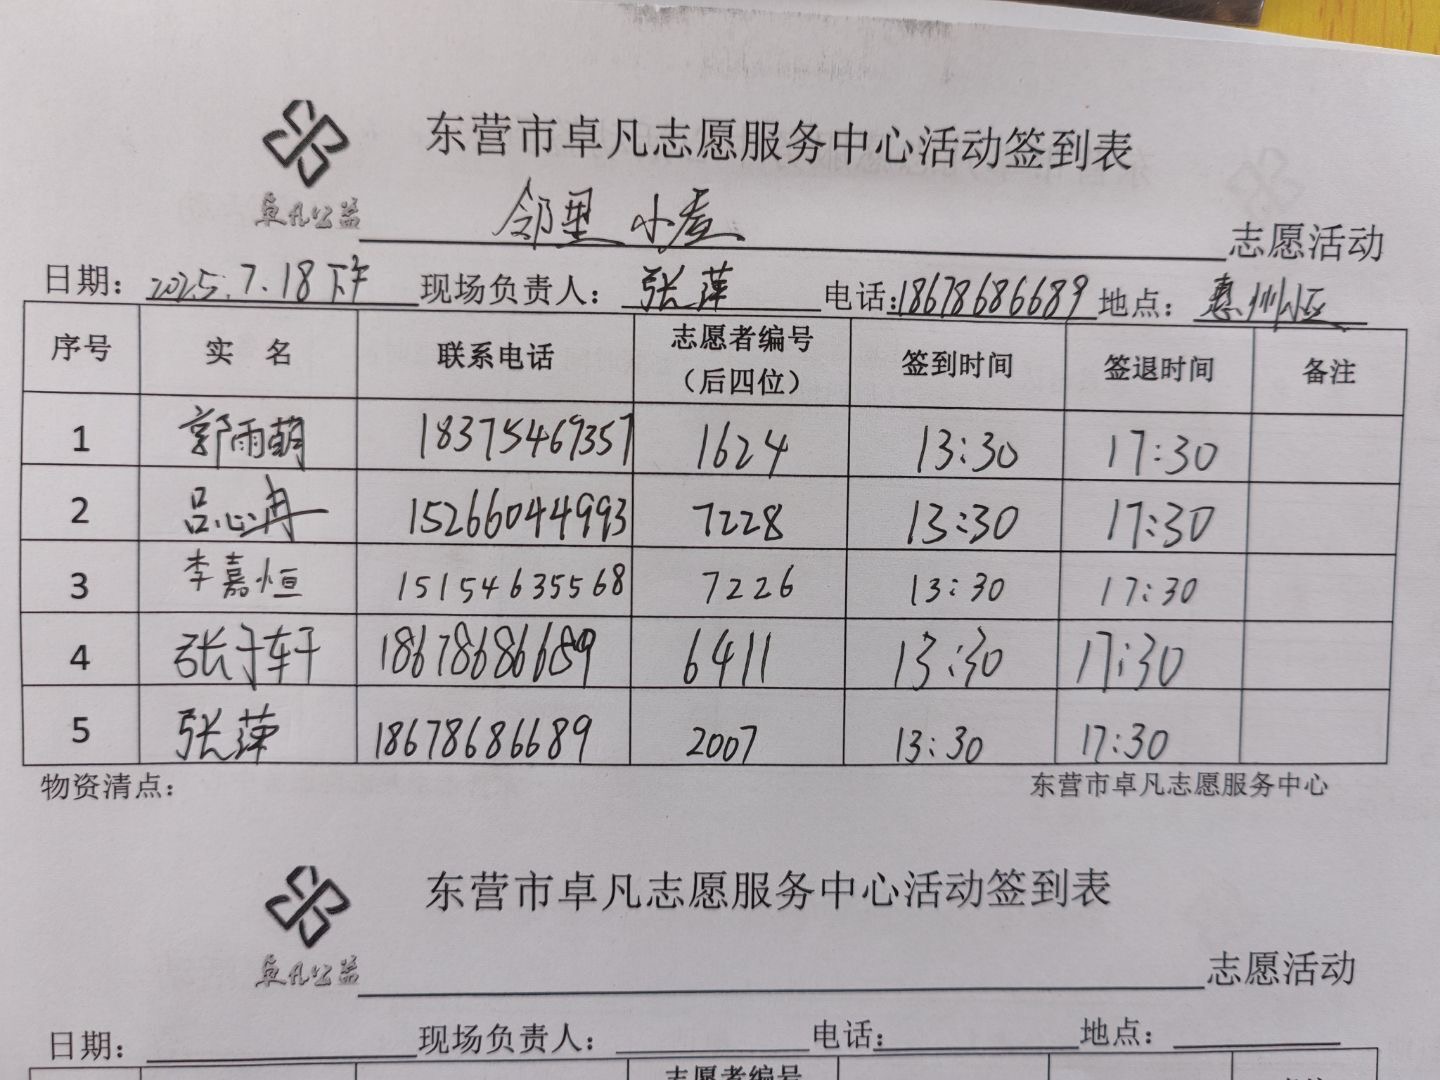 东营市卓凡志愿服务中心活动签到表
卓凡公益
邻里小麦 志愿活动
日期：2025.7.18下午 现场负责人：张萍 电话：18678686689 地点：惠州小区
序号 实 名 联系电话 志愿者编号（后四位） 签到时间 签退时间 备注
1 郭雨萌 18375469357 1624 13:30 17:30
2 吕心冉 15266044993 7228 13:30 17:30
3 李嘉恒 15154635568 7226 13:30 17:30
4 张于轩 18678686689 6411 13:30 17:30
5 张萍 18678686689 2007 13:30 17:30
物资清点： 东营市卓凡志愿服务中心
东营市卓凡志愿服务中心活动签到表
卓凡公益
志愿活动
日期： 现场负责人： 电话： 地点：
志愿者编号